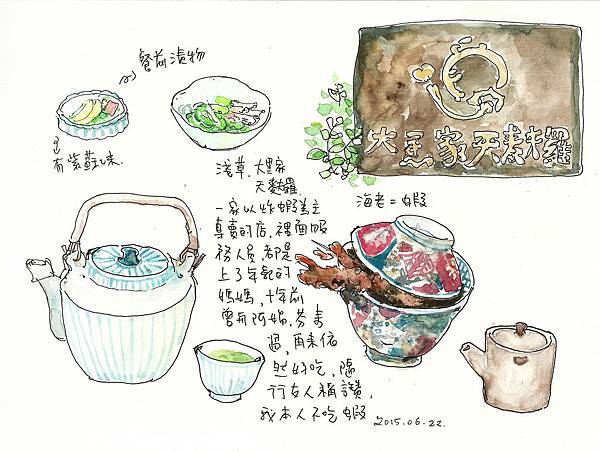 餐前漬物
有紫蘇口味.
大黑家天麩羅
淺草.大黑家
天麩羅.
一家以炸蝦為主
專賣的店,裡面服
務人員,都是
上了年紀的
媽媽,十年前
曾和阿娟.芬來
過,再來依
然好吃,隨
行友人稱讚,
我本人不吃蝦
海老=蝦
2015.06.22.